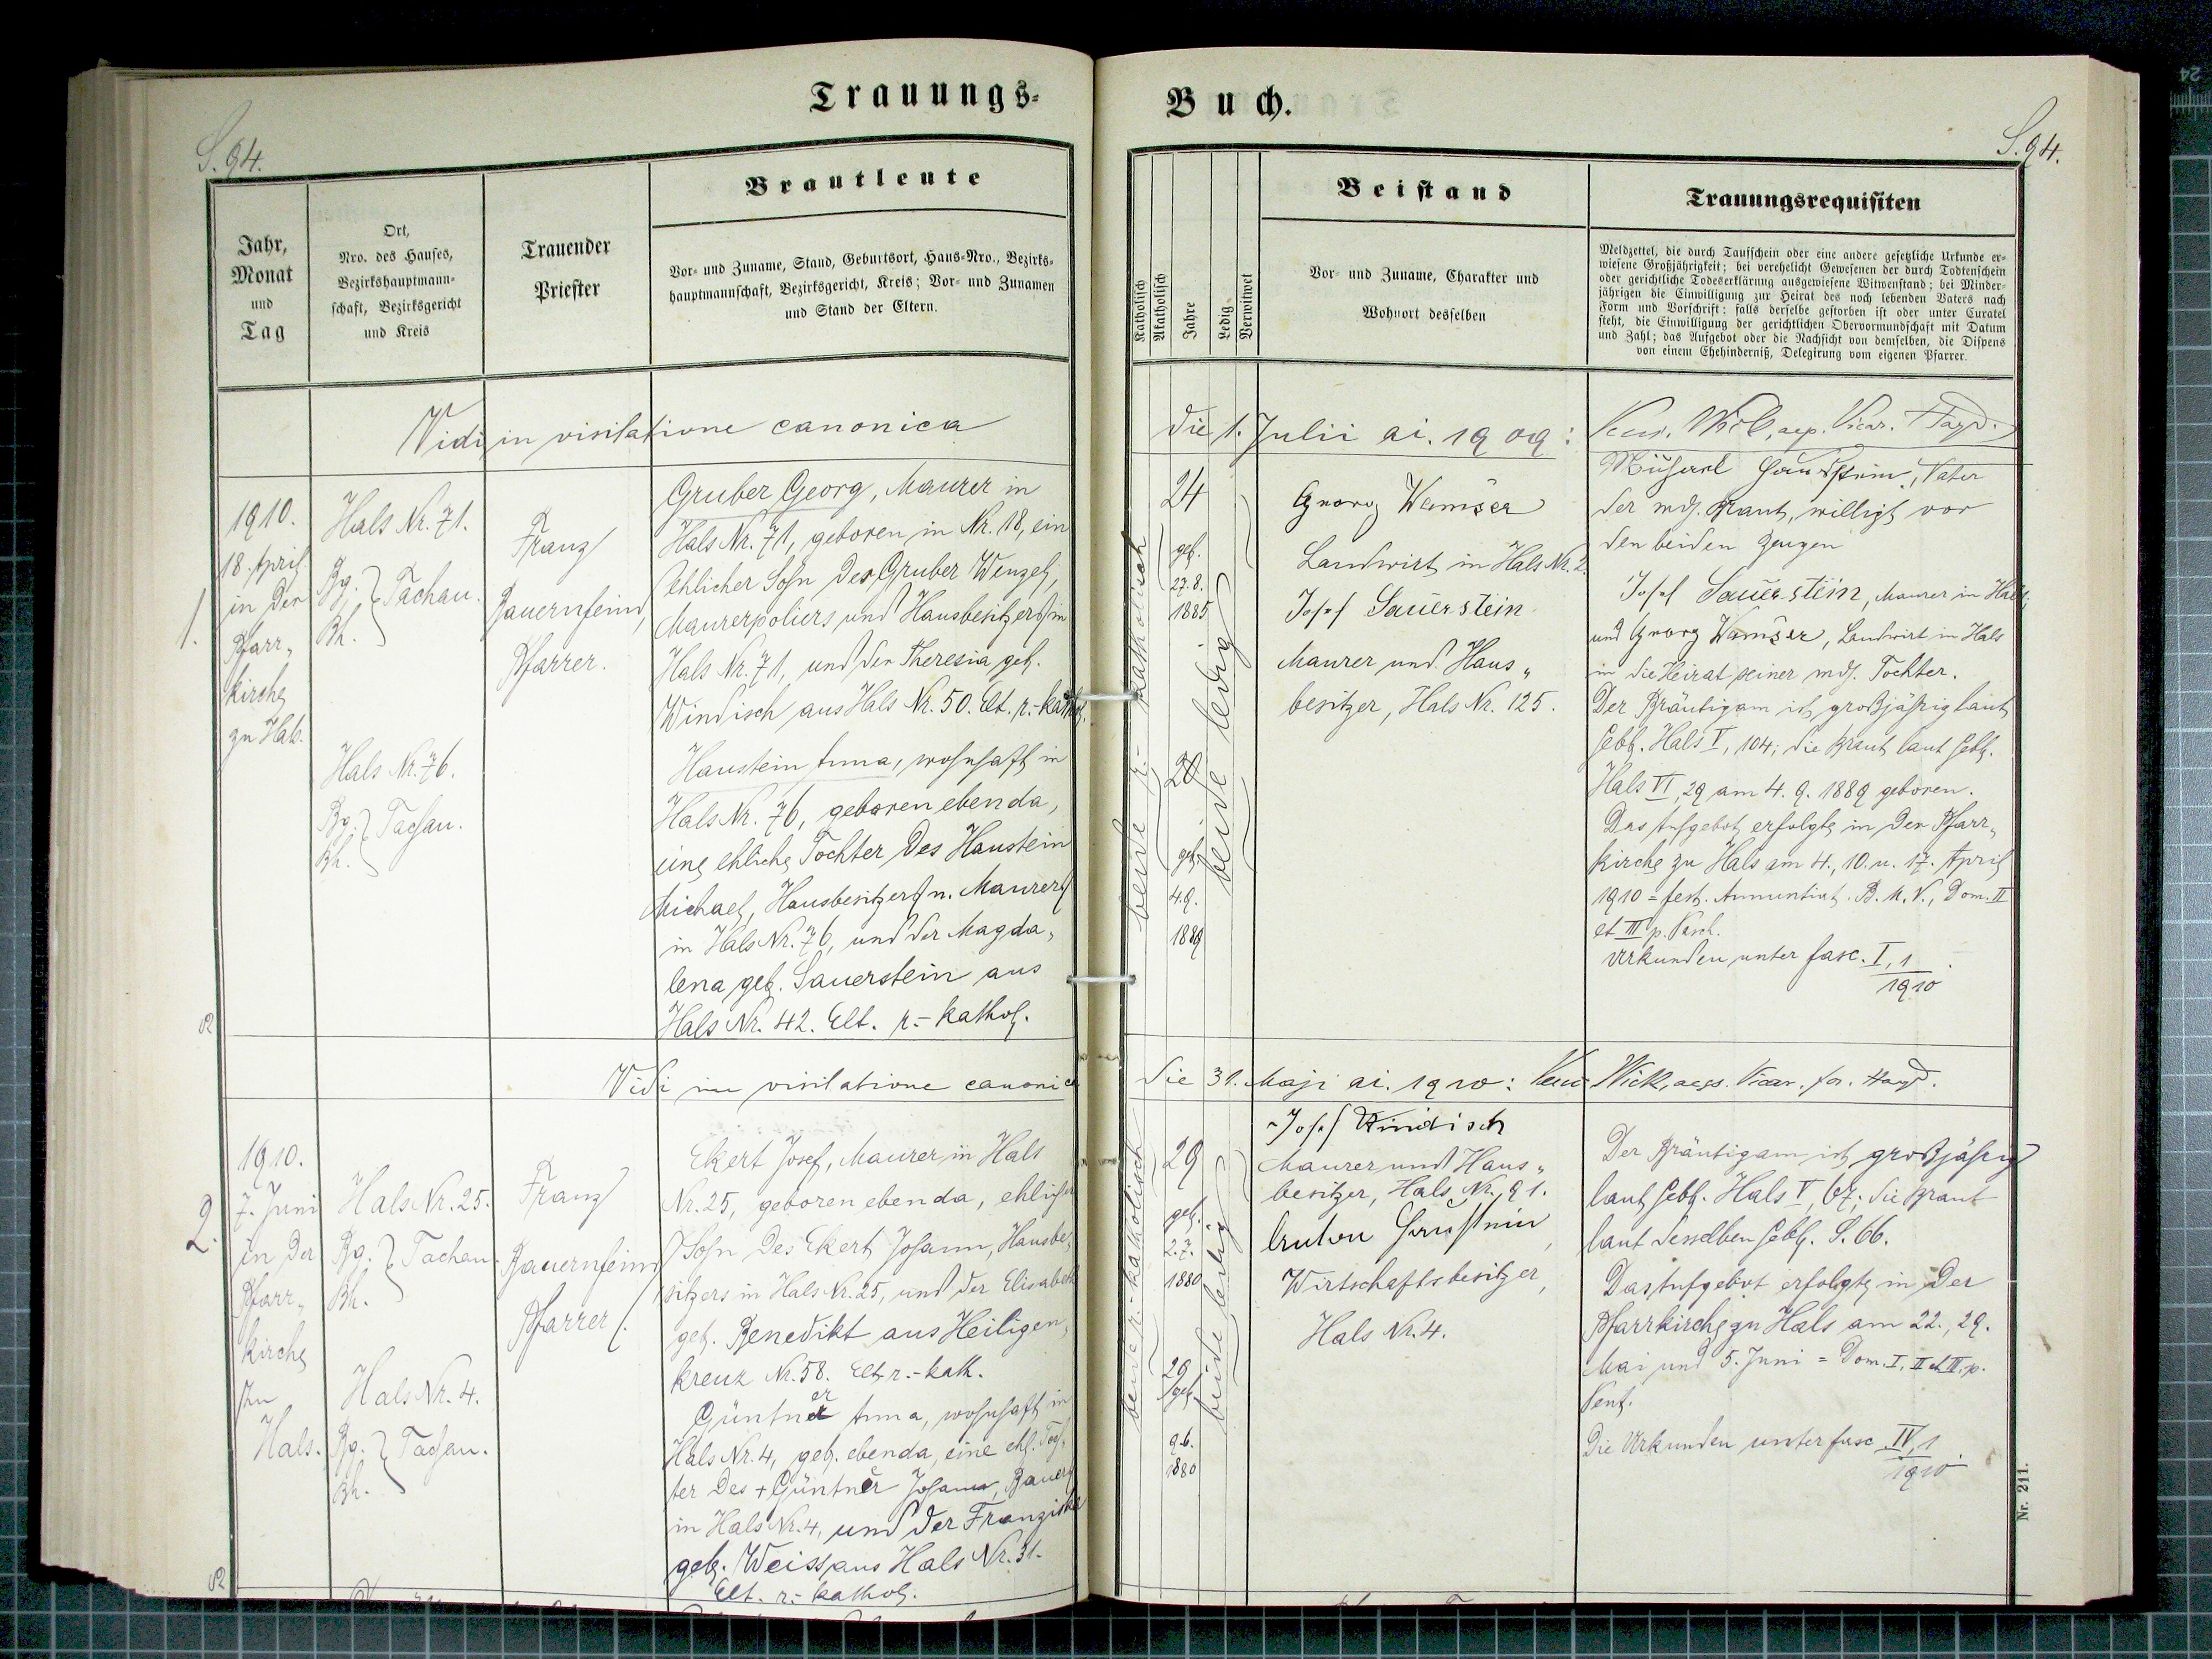 Trauungs-
S. 94.
Jahr,
Monat
und
Tag
Ort,
Nro. des Hauses,
Bezirkshauptmann-
schaft, Bezirksgericht
und Kreis
Trauender
Priester
Brautleute
Vor- und Zuname, Stand, Geburtsort, Haus-Nro., Bezirks-
hauptmannschaft, Bezirksgericht, Kreis; Vor- und Zunamen
und Stand der Eltern.
Vidi in visitatione canonica
1.
1910.
18. April
in der
Pfarr„
kirche
zu Hals.
Hals Nr. 71.
Bg. } Tachau.
Bh.
Franz
Bauernfeind,
Pfarrer.
Gruber Georg, Maurer in
Hals Nr. 71, geboren in Nr. 18, ein
ehlicher Sohn des Gruber Wenzel,
Maurerpoliers und Hausbesitzers in
Hals Nr. 71, und der Theresia geb.
Windisch aus Hals Nr. 50. Elt. r.-kathol.
Hals Nr. 76.
Bg. } Tachau.
Bh.
Haustein Anna, wohnhaft in
Hals Nr. 76, geboren ebenda,
eine ehliche Tochter des Haustein
Michael, Hausbesitzers u. Maurers
in Hals Nr. 76, und der Magda„
lena geb. Sauerstein aus
Hals Nr. 42. Elt. r.-kathol.
Vidi in visitatione canonica
2.
1910.
7. Juni
in der
Pfarr„
kirche
zu
Hals.
Hals Nr. 25.
Bg. } Tachau.
Bh.
Franz
Bauernfeind
Pfarrer.
Ekert Josef, Maurer in Hals
Nr. 25, geboren ebenda, ehlicher
Sohn des Ekert Johann, Hausbe„
sitzers in Hals Nr. 25, und der Elisabeth
geb. Benedikt aus Heiligen„
kreuz Nr. 58. Elt. r.-kath.
Hals Nr. 4.
Bg. } Tachau.
Bh.
er
Güntner Anna, wohnhaft in
Hals Nr. 4, geb. ebenda, eine ehl. Toch„
ter des + Güntner Johann, Bauers
in Hals Nr. 4, und der Franziska
geb. Weiss aus Hals Nr. 31.
Elt. r.-kathol.
Buch.
S. 94.
Katholisch
Akatholisch
Jahre
Ledig
Verwitwet
Beistand
Vor- und Zuname, Charakter und
Wohnort desselben
Trauungsrequisiten
Meldzettel, die durch Taufschein oder eine andere gesetzliche Urkunde er-
wiesene Großjährigkeit; bei verehelicht Gewesenen der durch Todtenschein
oder gerichtliche Todeserklärung ausgewiesene Witwenstand; bei Minder-
jährigen die Einwilligung zur Heirat des noch lebenden Vaters nach
Form und Vorschrift; falls derselbe gestorben ist oder unter Curatel
steht, die Einwilligung der gerichtlichen Obervormundschaft mit Datum
und Zahl; das Aufgebot oder die Nachsicht von demselben, die Dispens
von einem Ehehinderniß, Delegirung vom eigenen Pfarrer.
die 1. Julii ai. 1909: Vicar.
beide r.-katholisch
24
geb.
27.8.
1885
20
geb.
4.9.
1889
beide ledig
Georg Wamser
Landwirt in Hals Nr. 2.
Josef Sauerstein
Maurer und Haus„
besitzer, Hals Nr. 125.
Michael Haustein, Vater
der mdj. Braut, willigt vor
den beiden Zeugen
Josef Sauerstein, Maurer in Hals,
und Georg Wamser, Landwirt in Hals
in die Heirat seiner mdj. Tochter.
Der Bräutigam ist großjährig laut
Gebb. Hals V, 104; die Braut laut Gebb.
Hals VI, 29 am 4. 9. 1889 geboren.
Das Aufgebot erfolgte in der Pfarr„
kirche zu Hals am 4., 10. u. 17. April
1910 = fest. Annuntiat. B. M. V., Dom. II
et III p. Pasch.
Urkunden unter fasc. I, 1
1910
die 31. Maji ai. 1910: Vicar. for.
beide r.-katholisch
29
geb.
2.7.
1880
29
geb.
9.6.
1880
beide ledig
Josef Windisch
Maurer und Haus„
besitzer, Hals Nr. 91.
Anton Haustein,
Wirtschaftsbesitzer,
Hals Nr. 4.
Der Bräutigam ist großjährig
laut Gebb. Hals V, 67; die Braut
laut desselben Gebb. S. 66.
Das Aufgebot erfolgte in der
Pfarrkirche zu Hals am 22., 29.
Mai und 5. Juni = Dom. I, II et III p.
Pent.
Die Urkunden unter fasc. IV, 1.
1910
Nr. 211.
24